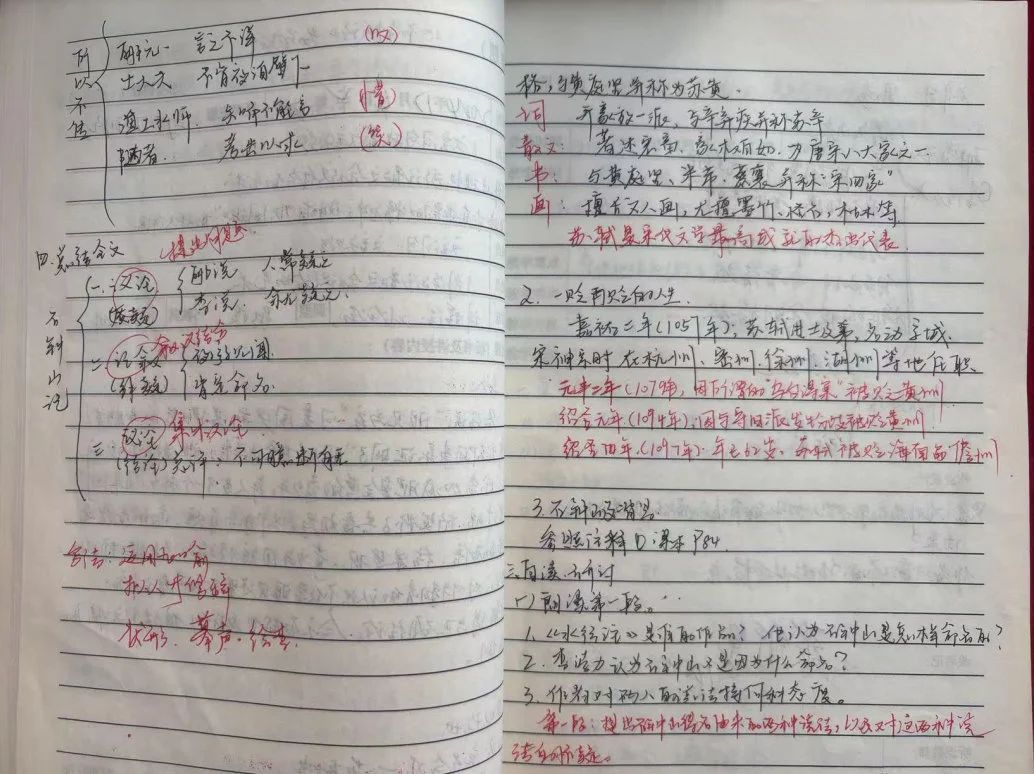 所以不传
郦元 言之不详 (叹)
士大夫 不肯夜泊绝壁下
渔工水师 知而不能言 (惜)
陋者 考击以求 (笑)
四.总结全文
石钟山记
一、议论 提出疑惑
(质疑) 郦说 人常疑之
李说 余尤疑之
二 记叙 叙议结合
(解疑)
三. 议论
(结论) 不可臆断有无
写法: 运用比喻
拟人 修辞
状形 摹声·绘
格,与黄庭坚并称为苏黄.
词 开豪放一派, 与辛弃疾并称苏辛
散文: 著述宏富、豪放自如、为唐宋八大家之一.
书: 与黄庭坚、米芾、蔡襄并称"宋四家"
画: 擅长文人画,尤擅墨竹、怪石、枯木等.
苏轼是宋代文学最高成就的杰出代表.
2. 一贬再贬的人生.
嘉祐二年(1057年),苏轼进士及第,名动京城.
宋神宗时在杭州、密州、徐州、湖州等地任职.
元丰二年(1079年,因所谓的"乌台诗案"被贬黄州
绍圣元年(1094年),因与 被贬 州
绍圣四年(1097年).年已62岁,苏轼被贬海南岛儋州
3.
参照注释① 课本P84.
三.
(一)朗读第一段.
1.《水经注》是谁的作品? 他认为石钟山是怎样命名的?
2. 李渤认为石钟山又是因为什么命名?
3. 作者对两人的说法持何种态度。
第一段: 提出石钟山得名由来的两种说法,以及对这两种说
法的质疑。